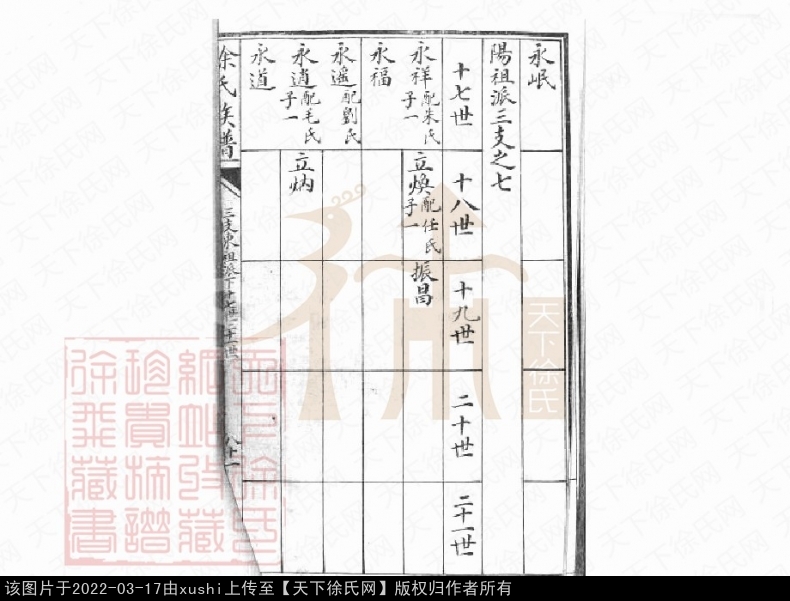 永岷
陽祖派三支之七
十七世
十八世
十九世
二十世
二十一世
永祥配朱氏子一
立煥配任氏子一
振昌
永福
永遥配劉氏
永逍配毛氏子一
立炳
永道
徐氏族譜
八十一
天下徐氏网
该图片于2022-03-17由xushi上传至【天下徐氏网】版权归作者所有